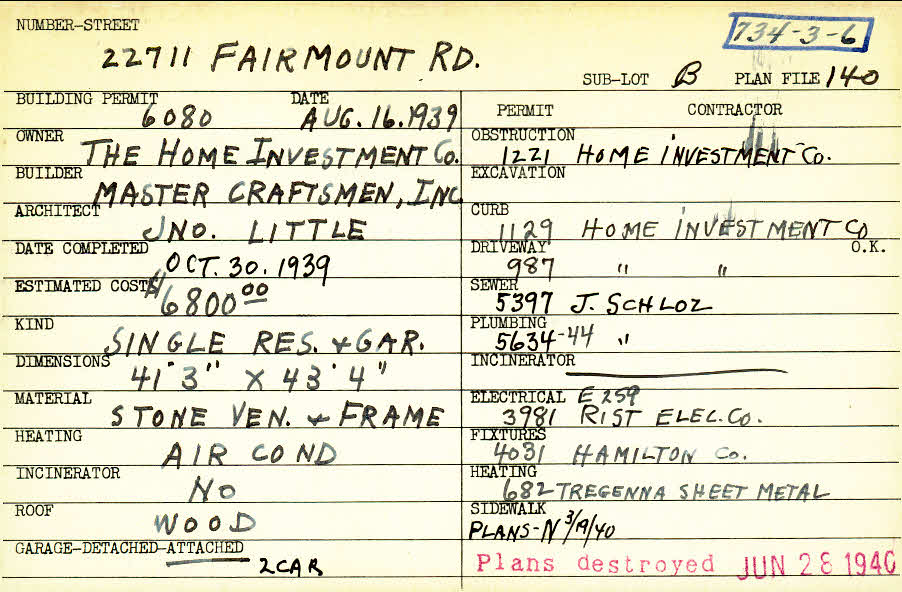 NUMBER-STREET
22711 FAIRMOUNT RD.
734-3-6
SUB-LOT B PLAN FILE 140
BUILDING PERMIT 6080 DATE AUG. 16. 1939
OWNER THE HOME INVESTMENT Co.
BUILDER MASTER CRAFTSMEN, INC
ARCHITECT JNO. LITTLE
DATE COMPLETED OCT. 30. 1939
ESTIMATED COST $6800.00
KIND SINGLE RES. & GAR.
DIMENSIONS 41' 3" X 43' 4"
MATERIAL STONE VEN. & FRAME
HEATING AIR COND
INCINERATOR NO
ROOF WOOD
GARAGE-DETACHED-ATTACHED 2 CAR
PERMIT CONTRACTOR
OBSTRUCTION 1221 HOME INVESTMENT Co.
EXCAVATION
CURB 1129 HOME INVESTMENT CO
DRIVEWAY 987 " " O.K.
SEWER 5397 J. SCHLOZ
PLUMBING 5634-44 "
INCINERATOR
ELECTRICAL E 259
3981 RIST ELEC. Co.
FIXTURES 4031 HAMILTON Co.
HEATING 682 TREGENNA SHEET METAL
SIDEWALK
PLANS-N 3/19/40
Plans destroyed JUN 28 1940